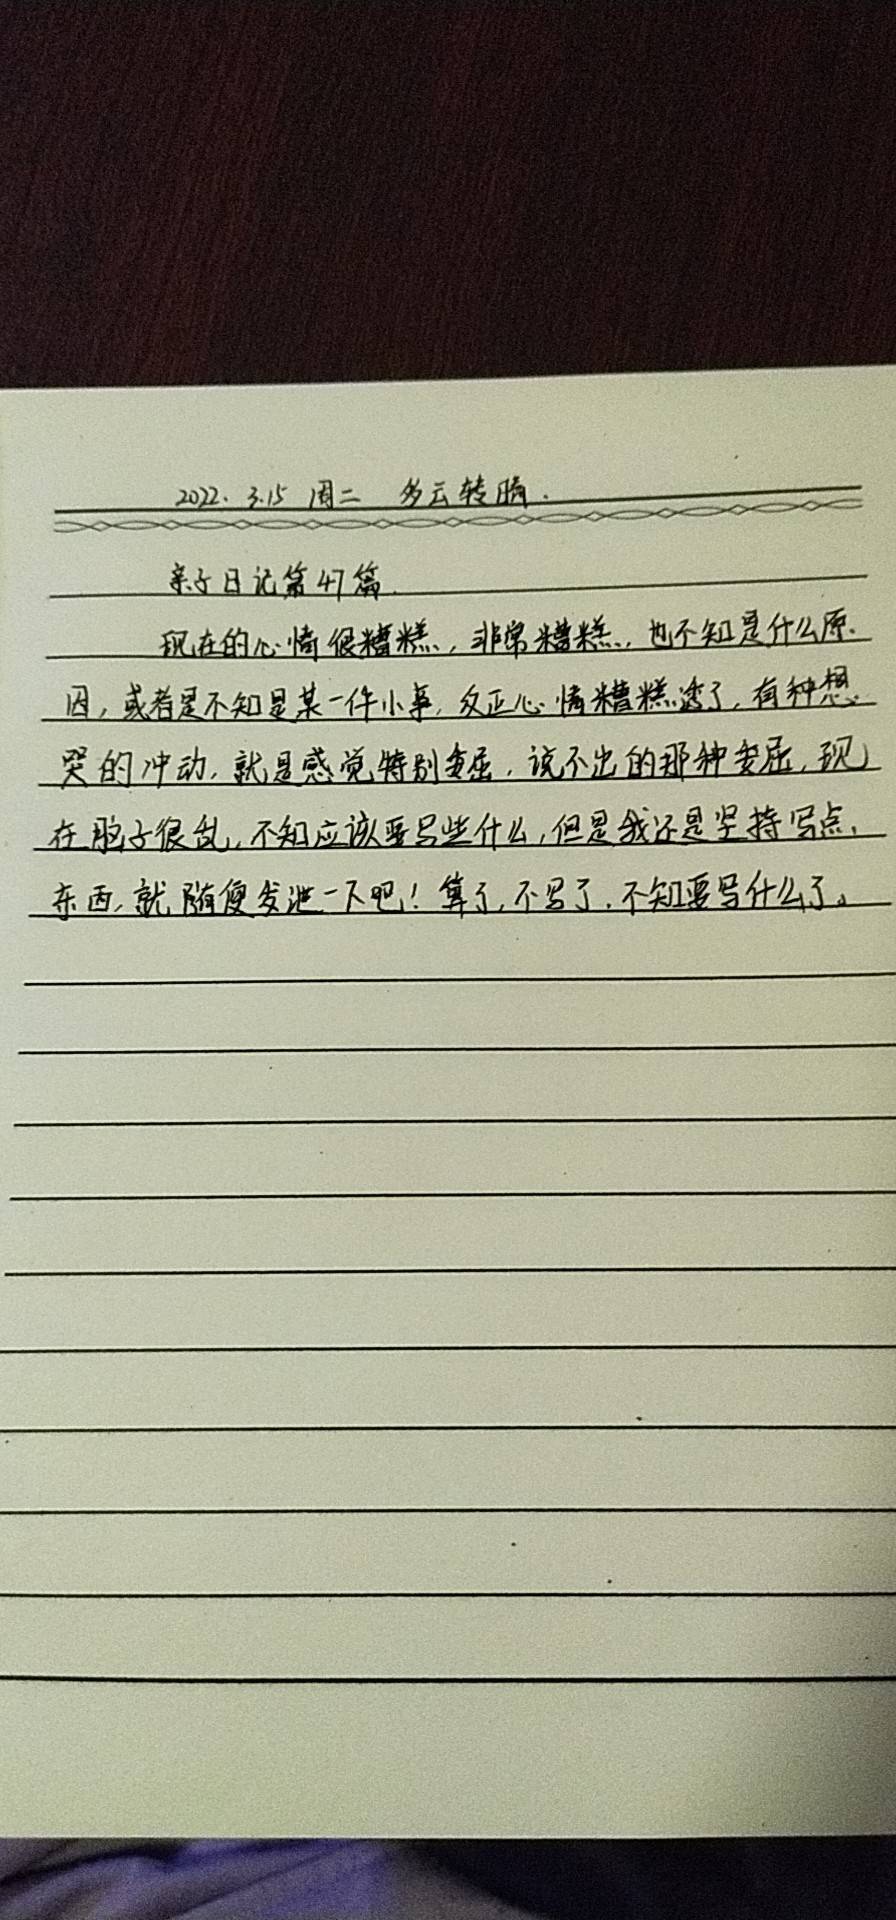 2022. 3.15 周二 多云转晴.
亲子日记第47篇.
现在的心情很糟糕,非常糟糕,也不知是什么原
因,或者是不知是某一件小事,反正心情糟糕透了,有种想
哭的冲动,就是感觉特别委屈,说不出的那种委屈,现
在脑子很乱,不知应该要写些什么,但是我还是坚持写点
东西,就随便发泄一下吧!算了,不写了,不知要写什么了。